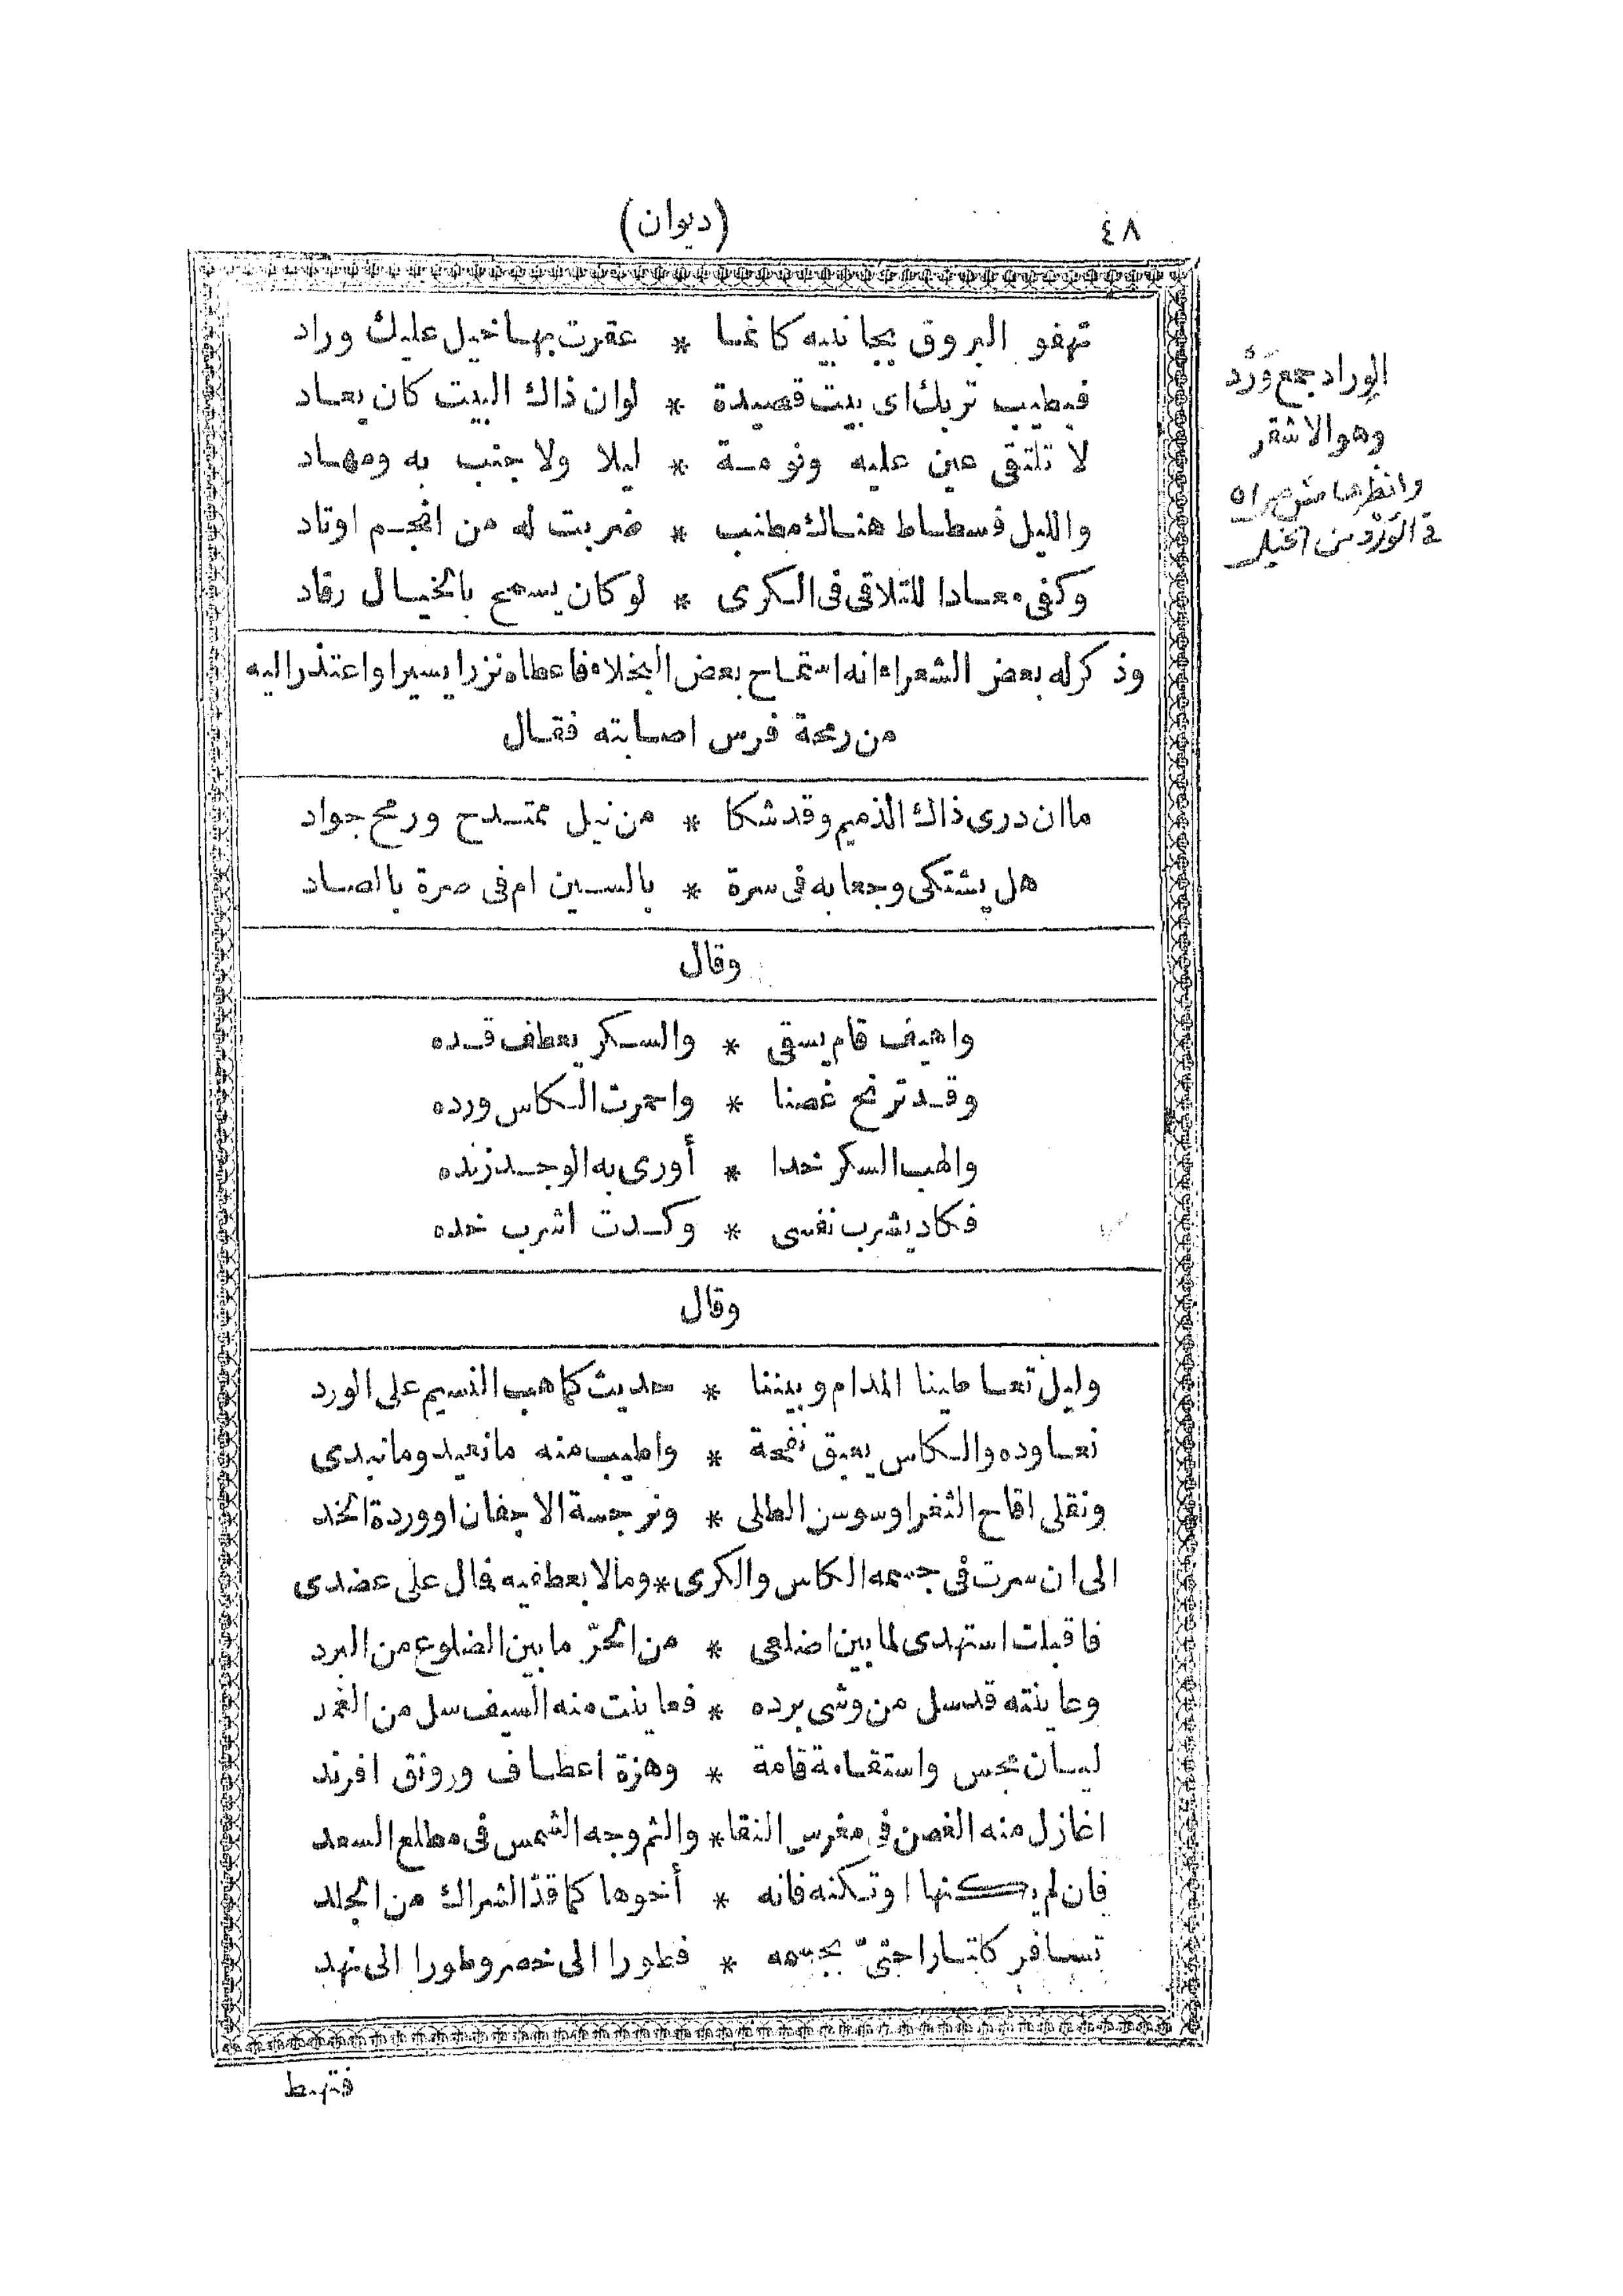 ٤٨
(ديوان)
تهفو البروق بجانبيه كانما * عقرت بها خيل عليك وراد
فبطيب تربك اى بيت قصيدة * لو ان ذاك البيت كان يعاد
لا تلتقى عين عليه ونومة * ليلا ولا جنب به ومهاد
والليل فسطاط هناك مطنب * ضربت له من انجم اوتاد
وكفى معادا للتلاقى فى الكرى * لو كان يسمح بالخيال رقاد
وذكر له بعض الشعراء انه استماح بعض البخلاء فاعطاه نزرا يسيرا واعتذر اليه
من رمحة فرس اصابته فقال
ما ان درى ذاك الذميم وقد شكا * من نيل ممتدح ورمح جواد
هل يشتكى وجعا به فى سرة * بالسين ام فى صرة بالصاد
وقال
واهيف قام يسقى * والسكر يعطف قده
وقد ترنح غصنا * واحمرت الكاس ورده
والهب السكر خدا * أورى به الوجد زنده
فكاد يشرب نفسى * وكدت اشرب خده
وقال
وليل تعاطينا المدام وبيننا * حديث كما هب النسيم على الورد
نعاوده والكاس يعبق نفحة * واطيب منه ما نعيد وما نبدى
ونقلى اقاح الثغر او سوسن الطلى * ونرجسة الاجفان او وردة الخد
الى ان سرت فى جسمه الكاس والكرى * ومالا بعطفيه فمال على عضدى
فاقبلت استهدى لما بين اضلعى * من الحرّ ما بين الضلوع من البرد
وعاينته قد سل من وشى برده * فعاينت منه السيف سل من الغمد
ليان مجس واستقامة قامة * وهزة اعطاف ورونق افرند
اغازل منه الغصن فى مغرس النقا * والثم وجه الشمس فى مطلع السعد
فان لم يكنها او تكنه فانه * أخوها كما قدّ الشراك من الجلد
تسافر كلتا راحتىّ بجسمه * فطورا الى خصر وطورا الى نهد
فتهبط
الوراد جمع وَرْد
وهو الاشقر
وانظرها
فى الوَرْد من الخيل